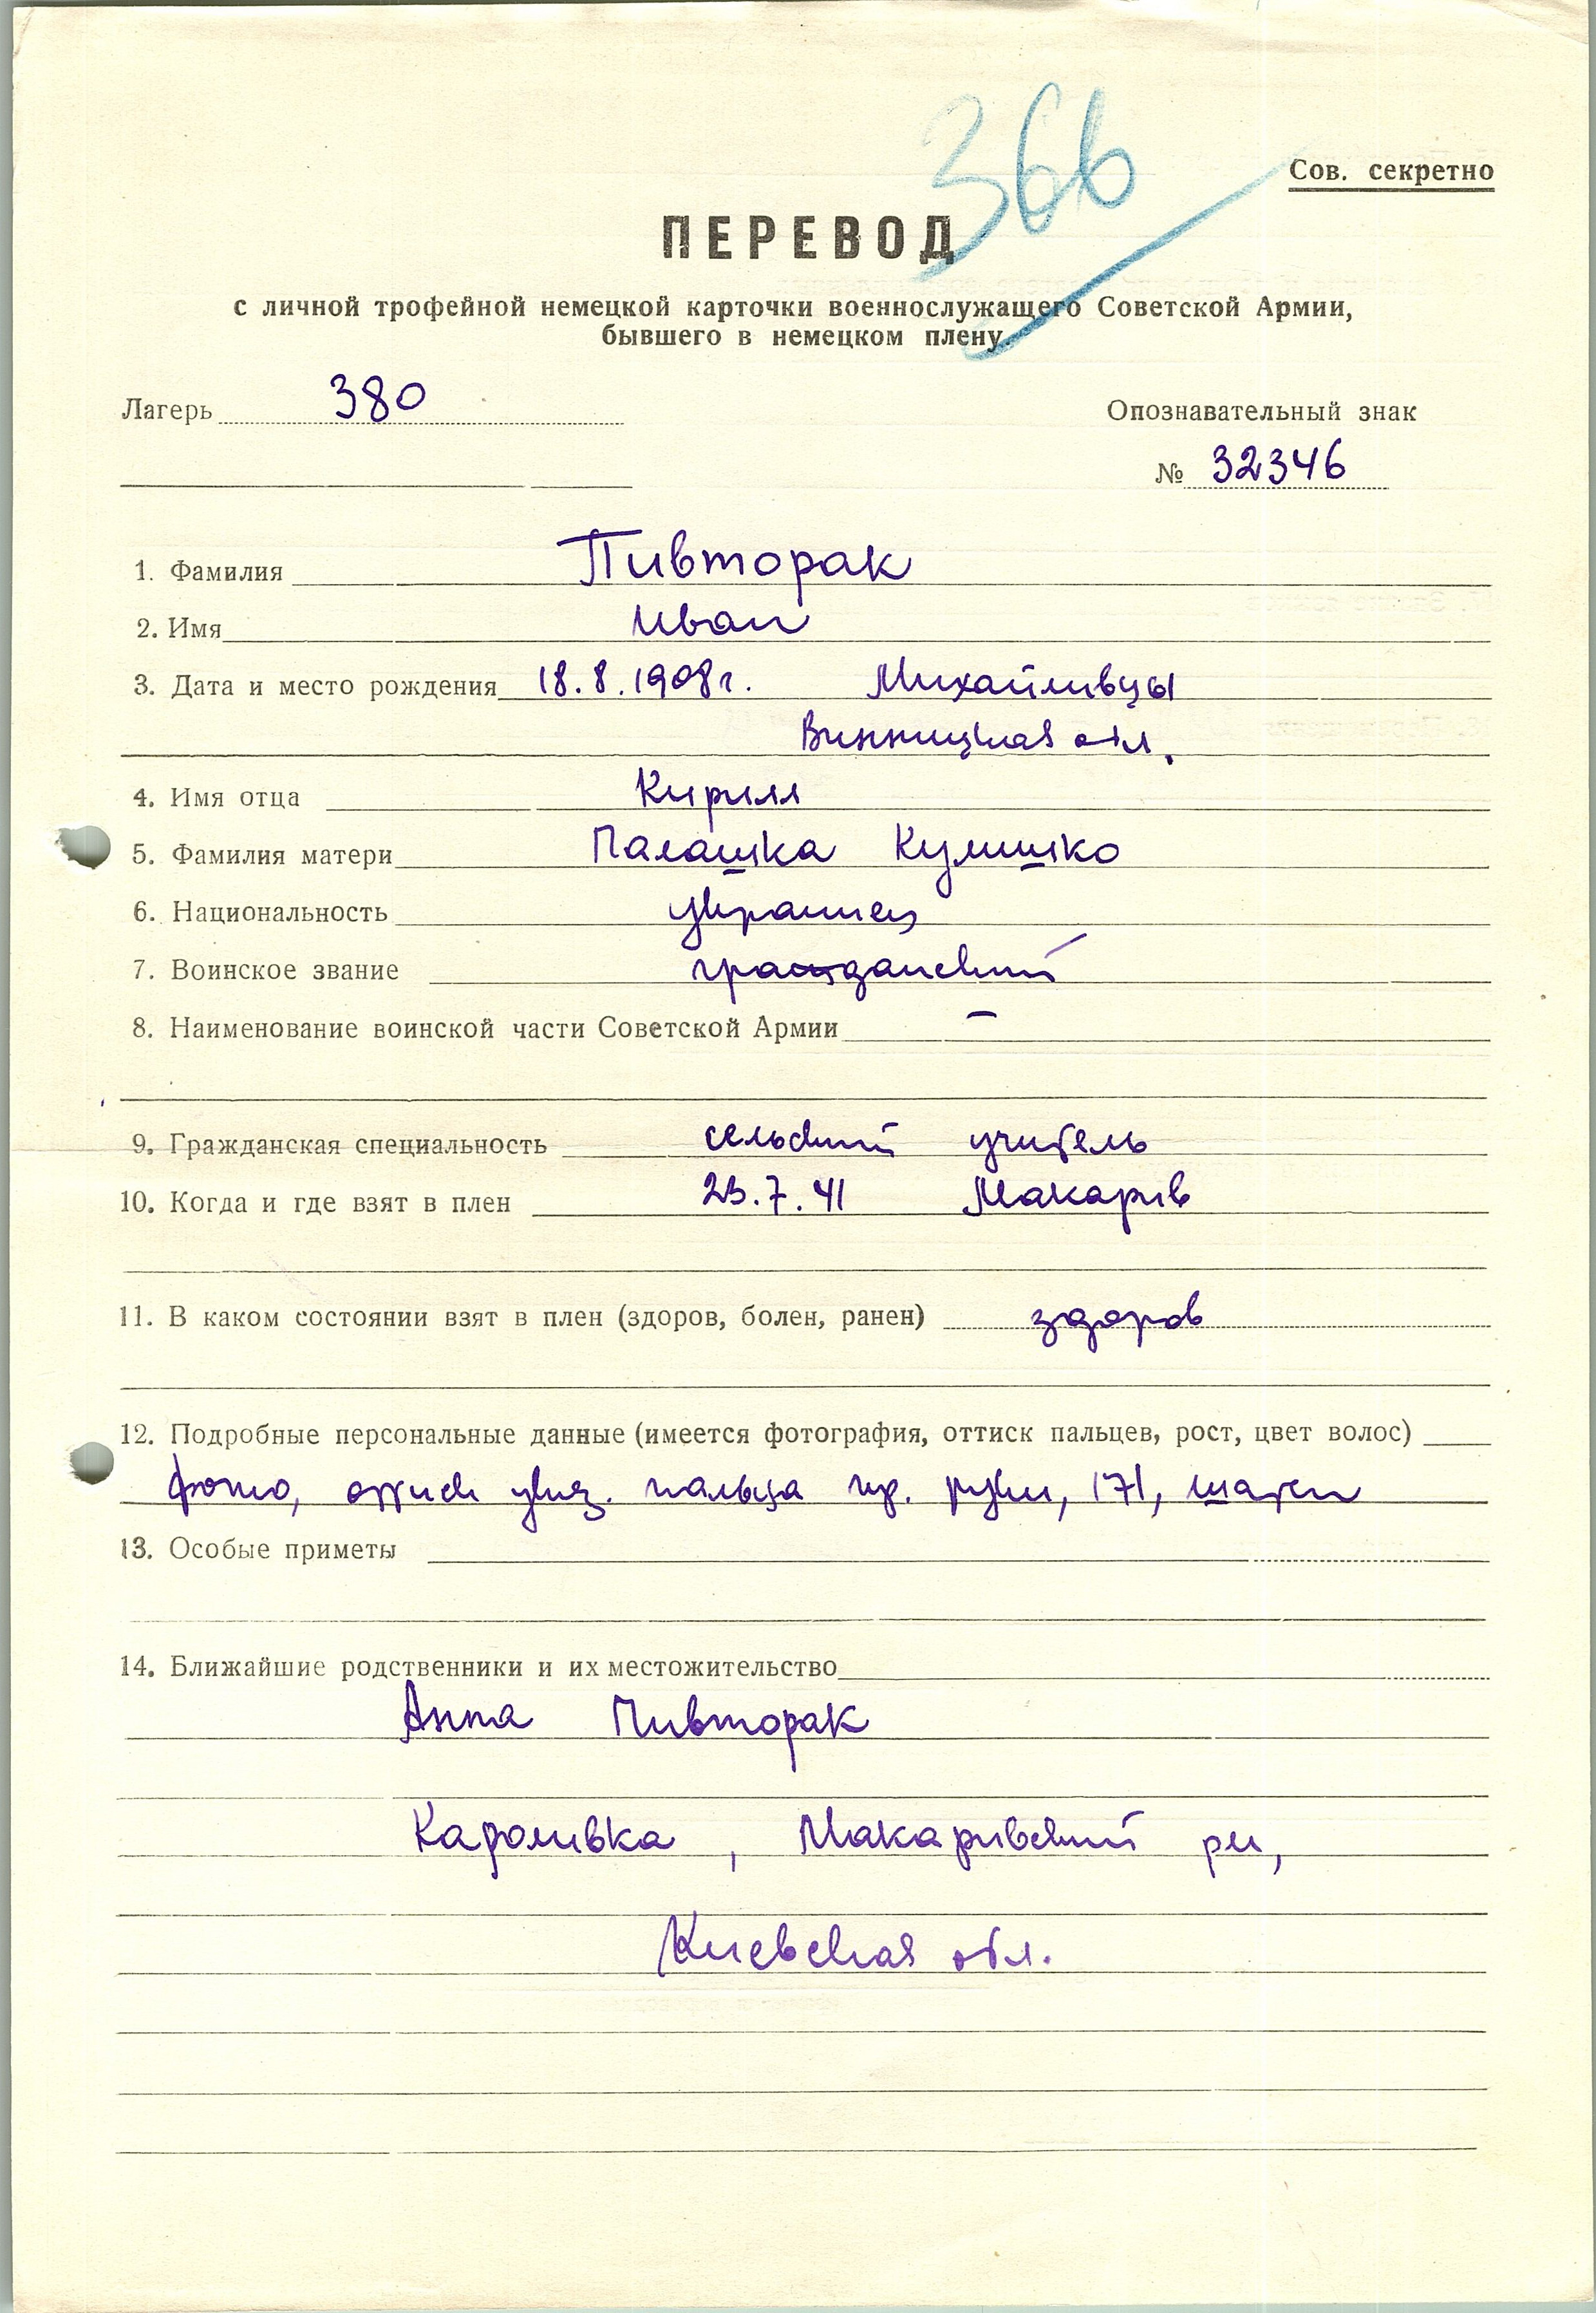 366
Сов. секретно
ПЕРЕВОД
с личной трофейной немецкой карточки военнослужащего Советской Армии,
бывшего в немецком плену.
Лагерь 380
Опознавательный знак
№ 32346
1. Фамилия Пивторак
2. Имя Иван
3. Дата и место рождения 18.8.1908г. Михайливцы
Винницкая обл.
4. Имя отца Кирилл
5. Фамилия матери Палашка Кулишко
6. Национальность украинец
7. Воинское звание гражданский
8. Наименование воинской части Советской Армии —
9. Гражданская специальность сельский учитель
10. Когда и где взят в плен 23.7.41 Макарив
11. В каком состоянии взят в плен (здоров, болен, ранен) здоров
12. Подробные персональные данные (имеется фотография, оттиск пальцев, рост, цвет волос)
фото, оттиск указ. пальца пр. руки, 171, шатен
13. Особые приметы
14. Ближайшие родственники и их местожительство
Анна Пивторак
Кароливка, Макаривский рн,
Киевская обл.